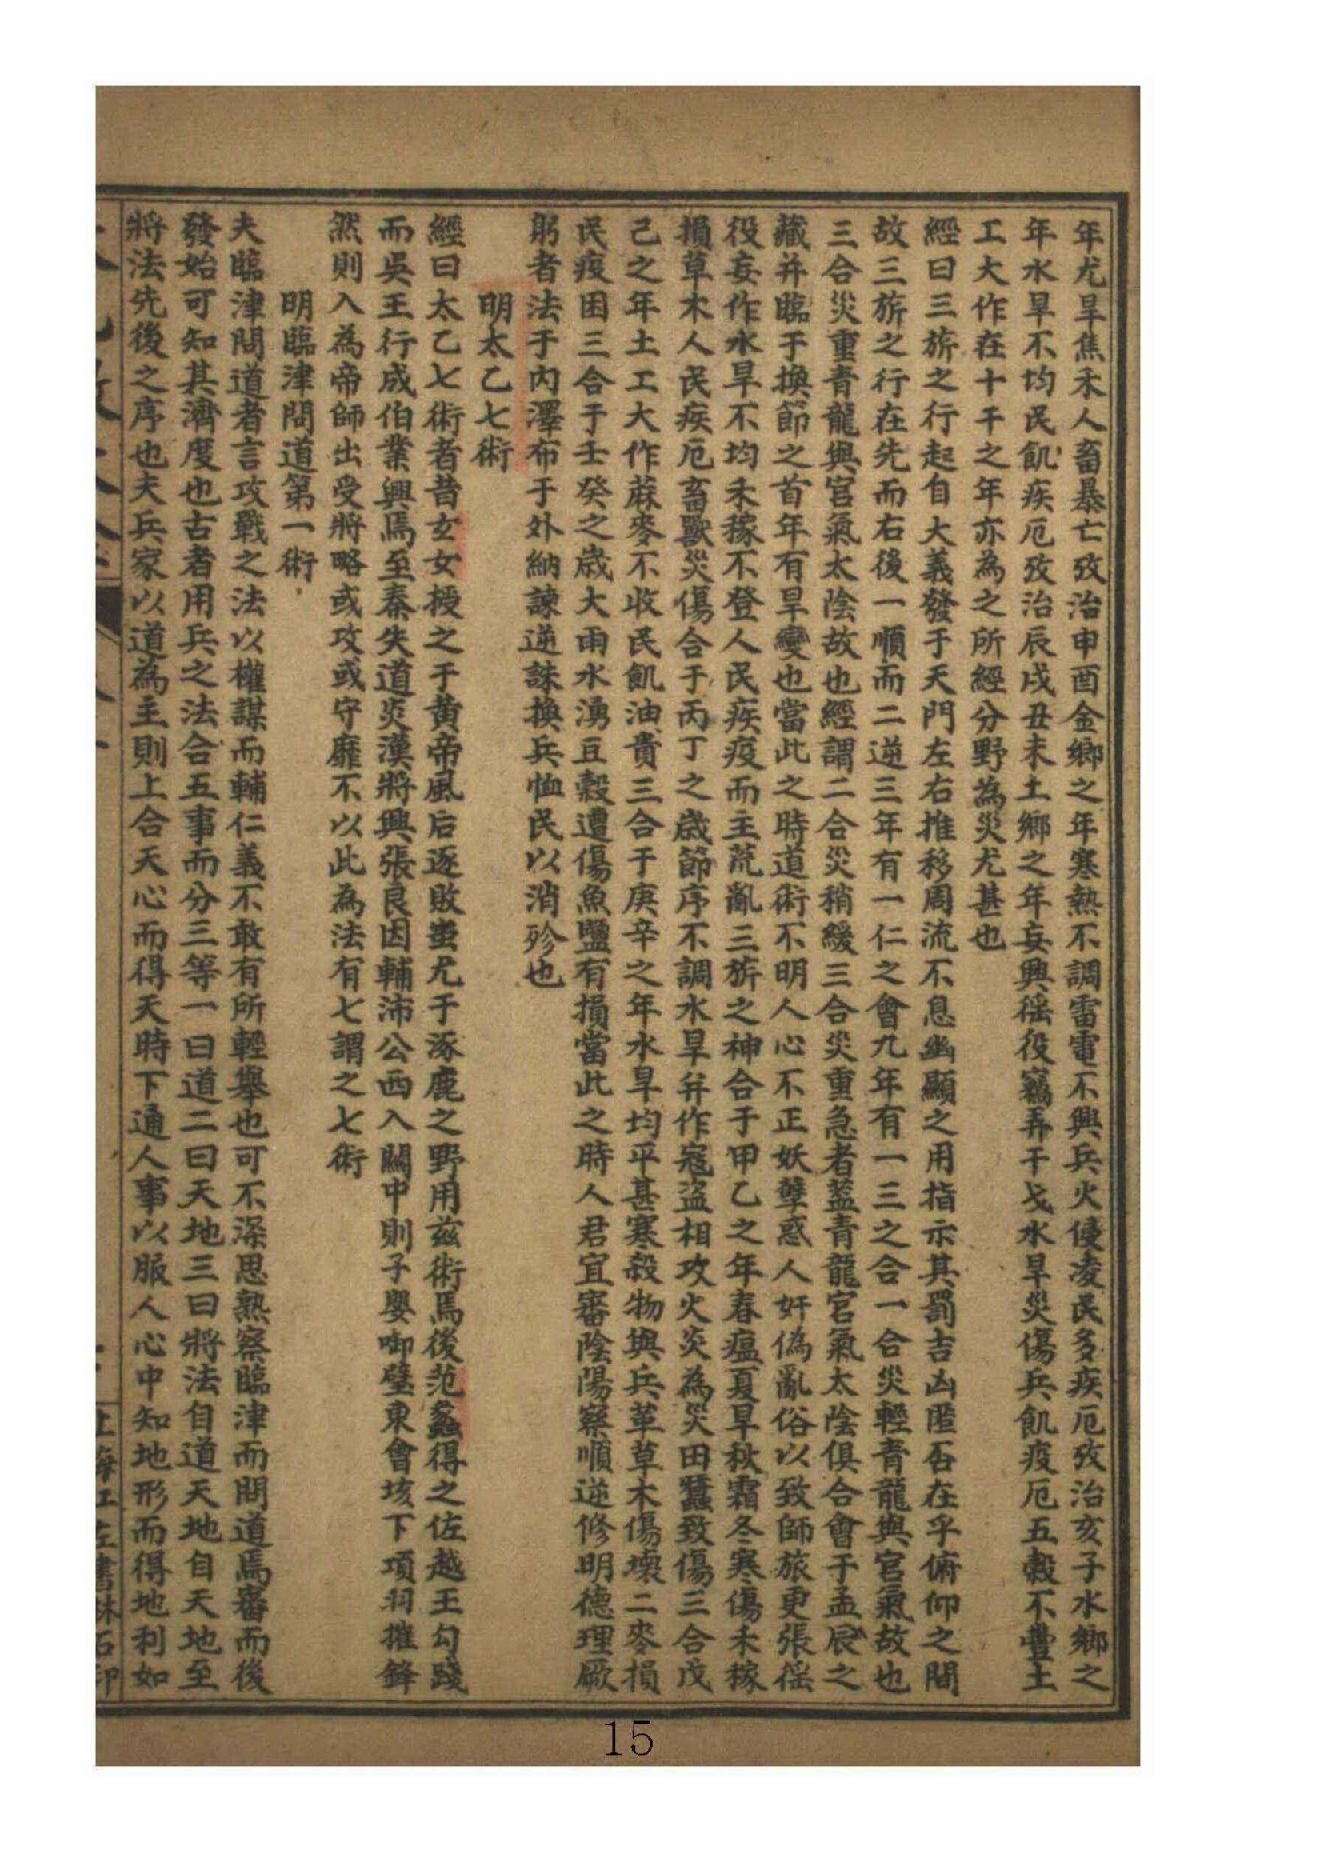 年尤旱焦禾人畜暴亡攷治申酉金鄉之年寒熱不調雷電不興兵火侵凌民多疾厄攷治亥子水鄉之
年水旱不均民飢疾厄攷治辰戌丑未土鄉之年妄興徭役竊弄干戈水旱災傷兵飢疫厄五穀不豐土
工大作在十干之年亦為之所經分野為災尤甚也
經曰三旂之行起自大義發于天門左右推移周流不息幽顯之用指示其罰吉凶匪否在乎俯仰之間
故三旂之行在先而右後一順而二逆三年有一仁之會九年有一三之合一合災輕青龍與宮氣故也
三合災重青龍與宮氣太陰故也經謂二合災稍緩三合災重急者葢青龍宮氣太陰俱合會于孟辰之
藏并臨于換節之首年有旱變也當此之時道術不明人心不正妖孽惑人奸偽亂俗以致師旅更張徭
役妄作水旱不均禾稼不登人民疾疫而主荒亂三旂之神合于甲乙之年春瘟夏旱秋霜冬寒傷禾稼
損草木人民疾厄畜獸災傷合于丙丁之歲節序不調水旱弁作寇盗相攻火炎為災田蠶致傷三合戊
己之年土工大作蔴麥不收民飢油貴三合于庚辛之年水旱均平甚寒殺物與兵革草木傷壞二麥損
民疫困三合于壬癸之歲大雨水湧豆穀遭傷魚鹽有損當此之時人君宜審陰陽察順逆修明德理厥
躬者法于內澤布于外納諫逆誅換兵恤民以消殄也
明太乙七術
經曰太乙七術者昔玄女授之于黃帝風后逐敗蚩尤于涿鹿之野用茲術焉後范蠡得之佐越王勾踐
而吳王行成伯業興焉至秦失道炎漢將興張良因輔沛公西入關中則子嬰啣璧東會垓下項羽摧鋒
然則入為帝師出受將略或攻或守靡不以此為法有七謂之七術
明臨津問道第一術
夫臨津問道者言攻戰之法以權謀而輔仁義不敢有所輕舉也可不深思熟察臨津而問道焉審而後
發始可知其濟度也古者用兵之法合五事而分三等一曰道二曰天地三曰將法自道天地自天地至
將法先後之序也夫兵家以道為主則上合天心而得天時下通人事以服人心中知地形而得地利如
上海江左書林石印
15